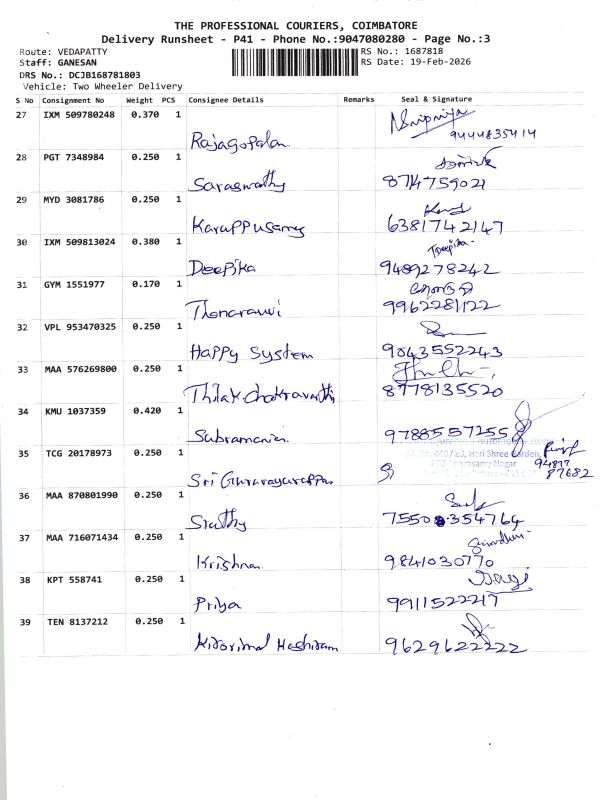 THE PROFESSIONAL COURIERS, COIMBATORE
Delivery Runsheet - P41 - Phone No.:9047080280 - Page No.:3
Route: VEDAPATTY RS No.: 1687818
Staff: GANESAN RS Date: 19-Feb-2026
DRS No.: DCJB168781803
Vehicle: Two Wheeler Delivery
S No Consignment No Weight PCS Consignee Details Remarks Seal & Signature
27 IXM 509780248 0.370 1
Rajagopalan 9444835414
28 PGT 7348984 0.250 1
Saraswathy 8714759021
29 MYD 3081786 0.250 1
Karuppusamy 6381742147
30 IXM 509813024 0.380 1 Deepika
Deepika 9489278242
31 GYM 1551977 0.170 1
9962281122
32 VPL 953470325 0.250 1
Happy System 9043552243
33 MAA 576269800 0.250 1
Thilak chakravarthi 8778135520
34 KMU 1037359 0.420 1
Subramanian 9788557255
35 TCG 20178973 0.250 1 Hari Shree Garden,
Nagar 94877
Sri Gururayurappan 87682
36 MAA 870801990 0.250 1
75508354764
37 MAA 716071434 0.250 1
Krishna 9841030770
38 KPT 558741 0.250 1
Priya 9911522217
39 TEN 8137212 0.250 1
9629622222